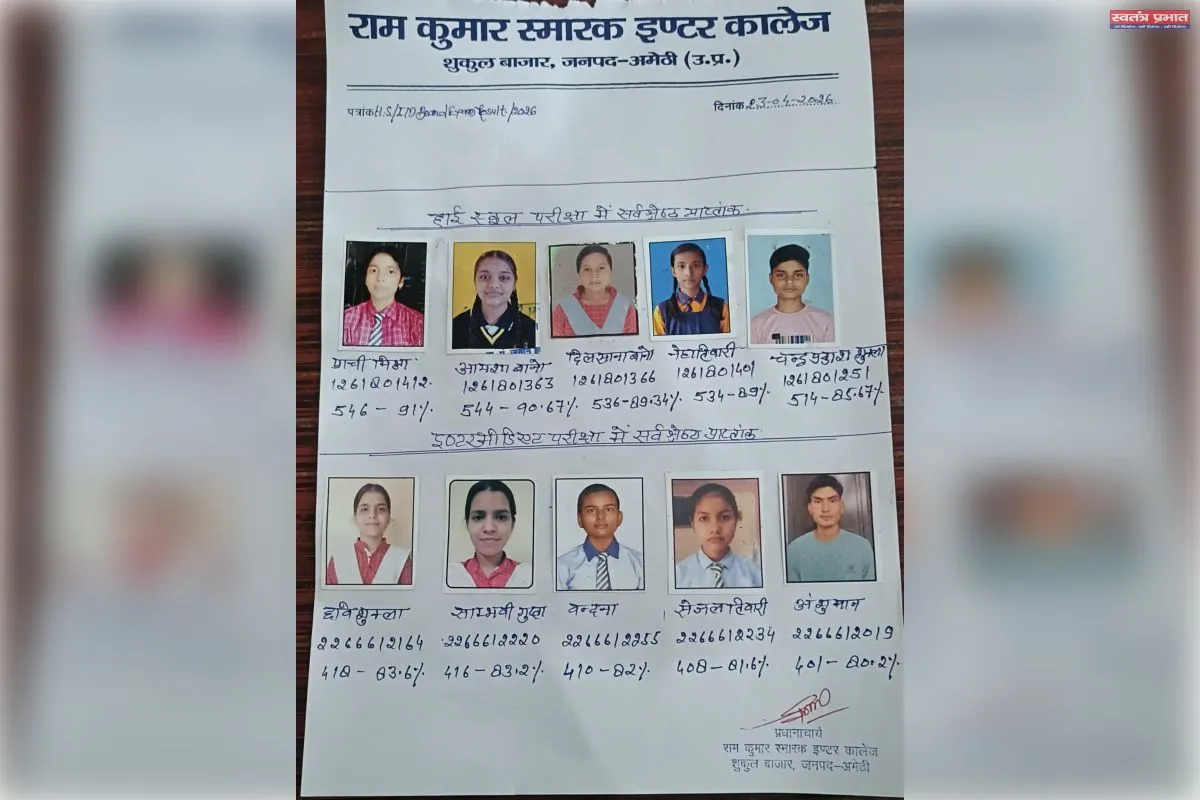 स्वतंत्र प्रभात
राम कुमार स्मारक इण्टर कालेज
शुकुल बाजार, जनपद-अमेठी (उ.प्र.)
पत्रांक H.S/ITD Board Exam Result/2026 दिनांक 23-04-2026
हाई स्कूल परीक्षा में सर्वश्रेष्ठ प्राप्तांक
प्राची मिश्रा आयशा बानो दिलसाना बानो नेहा तिवारी चन्द्र प्रकाश शुक्ला
1261801412 1261801363 1261801366 1261801401 1261801251
546 - 91% 544 - 90.67% 536-89.34% 534-89% 514-85.67%
इण्टरमीडिएट परीक्षा में सर्वश्रेष्ठ प्राप्तांक
छवि शुक्ला साम्भवी गुप्ता वन्दना सेजल तिवारी अंशुमान
2266612164 2266612220 2266612255 2266612234 2266612019
418 - 83.6% 416-83.2% 410-82% 408-81.6% 401-80.2%
प्रधानाचार्य
राम कुमार स्मारक इण्टर कालेज
शुकुल बाजार, जनपद-अमेठी